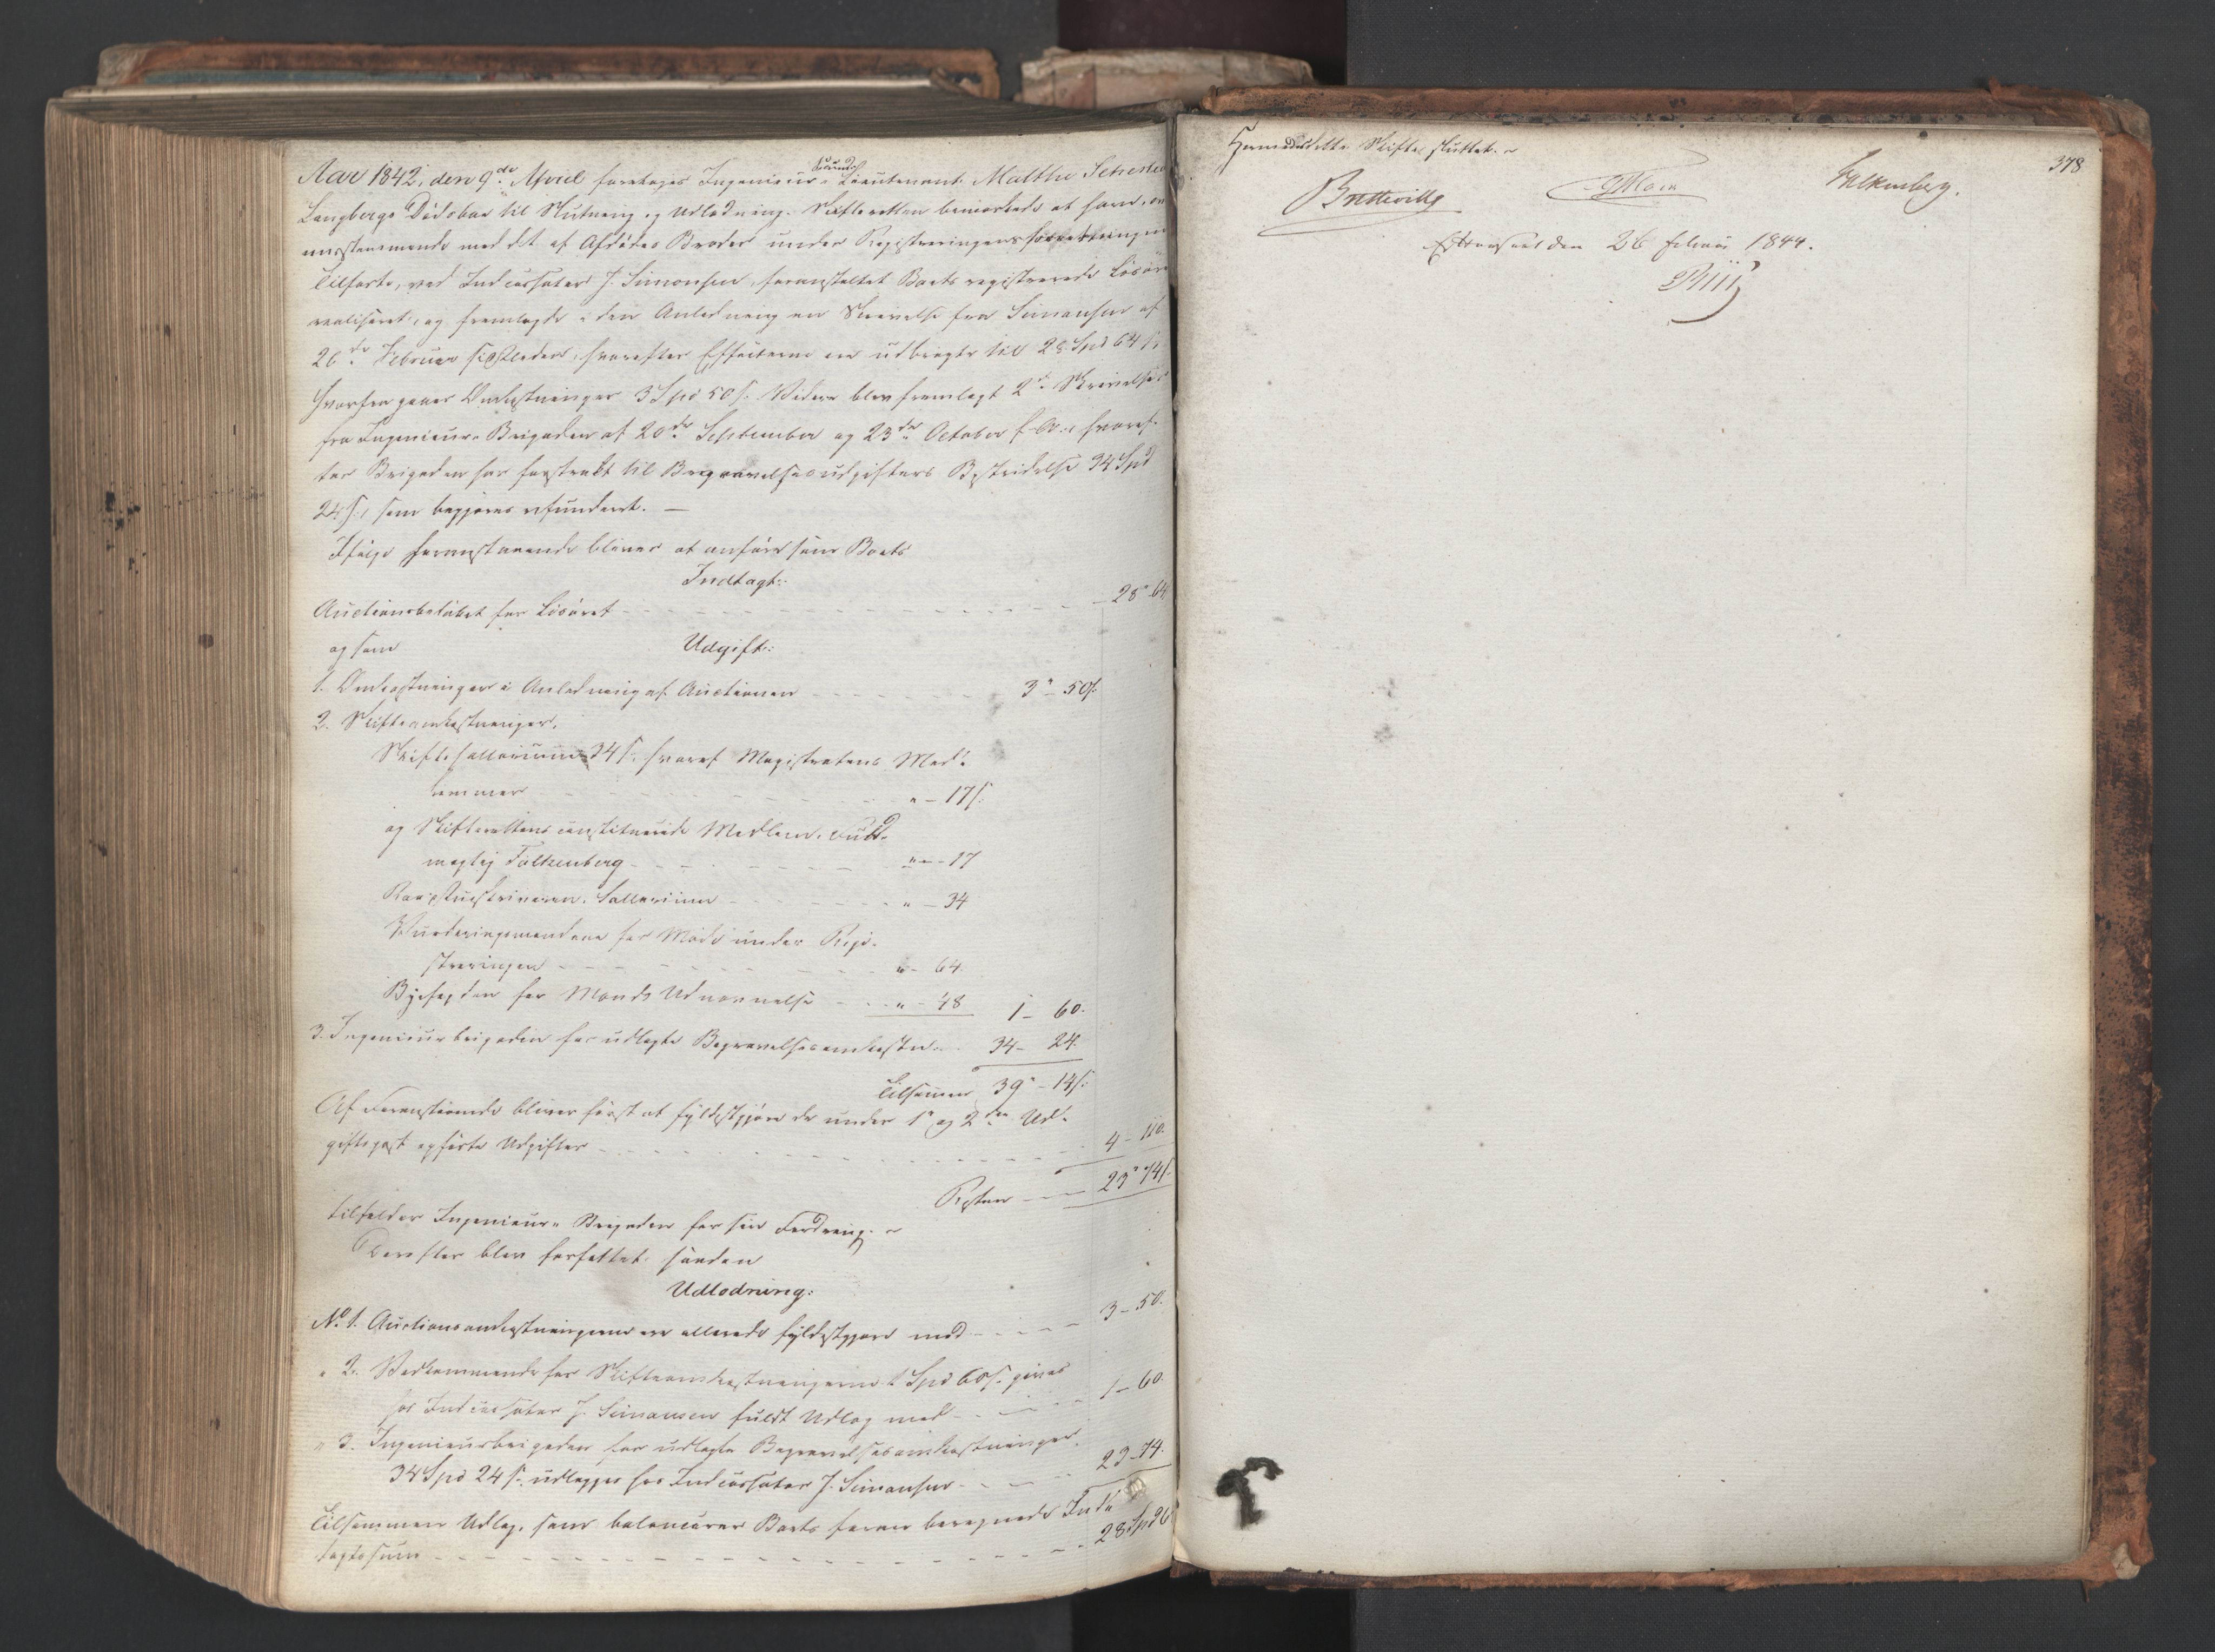 Aar 1842, den 9de April foretoges Ingenieur-Lieutenant Malthe
Secund
Langbergs Dødsboe til Slutning og Udlodning. Skifteretten bemærkede at have, over-
eensstemmende med det af Afdødes Broder under Registreringens
Tilførte, ved Incassator J. Simonsen, foranstaltet Boets registrerede Løsøre
realiseret, og fremlagde i den Anledning en Skrivelse fra Simonsen af
26de Februar sidstleden, hvorefter Effecterne ere udbragte til 28 Spd 64 s,
hvorfra gaaer Omkostninger 3 Spd 50 s. Videre blev fremlagt 2de Skrivelser
fra Ingenieur-Brigaden af 20de September og 23de October f. A., hvoref-
ter Brigaden har forstrakt til Begravelsesudgifters Bestridelse 34 Spd
24 s, som begjæres refunderet. —
Ifølge foranstaaende bliver at anføre som Boets
Indtægt:
Auctionsbeløbet for Løsøret - - - 28 - 64
og som
Udgift:
1. Omkostninger i Anledning af Auctionen - - - 3 - 50 s.
2. Skifteomkostninger.
Skiftesallarium 34 s, hvoraf Magistratens Med-
lemmer - - - " - 17 s.
og Skifterettens constituerede Medlem, Fuld-
mægtig Falkenberg - - - " - 17
Raadstueskriveren, Sallarium - - - " - 34
Vurderingsmændene for Møde under Regi-
streringen - - - " - 64
Byefogden for Mænds Udnævnelse - - - " - 48 1 - 60.
3. Ingenieurbrigaden for udlagte Begravelsesomkostn. - - 34 - 24.
Tilsammen 39 - 14 s.
Af Foranstaaende bliver først at fyldestgjøre de under 1ste og 2den Ud-
giftspost opførte Udgifter - - - 4 - 110.
Rester - - - 23 - 74 s.
tilfalder Ingenieur-Brigaden for sin Fordring. -
Derefter blev forfattet saadan
Udlodning:
No. 1. Auctionsomkostningerne ere allerede fyldestgjort med - - - 3 - 50.
" 2. Vedkommende for Skifteomkostningerne 1 Spd 60 s. gives
hos Incassator J. Simonsen fuldt Udlæg med - - - 1 - 60.
" 3. Ingenieurbrigaden for udlagte Begravelsesomkostninger,
34 Spd 24 s. udlægges hos Incassator J. Simonsen - - - 23 - 74.
Tilsammen Udlæg, som balancerer Boets foran beregnede Ind-
tægtssum - - - 28 Spd 6
Hermed dette Skifte sluttet. -
378
Bretteville
Falkenberg.
Efterseet den 26 Februar 1844.